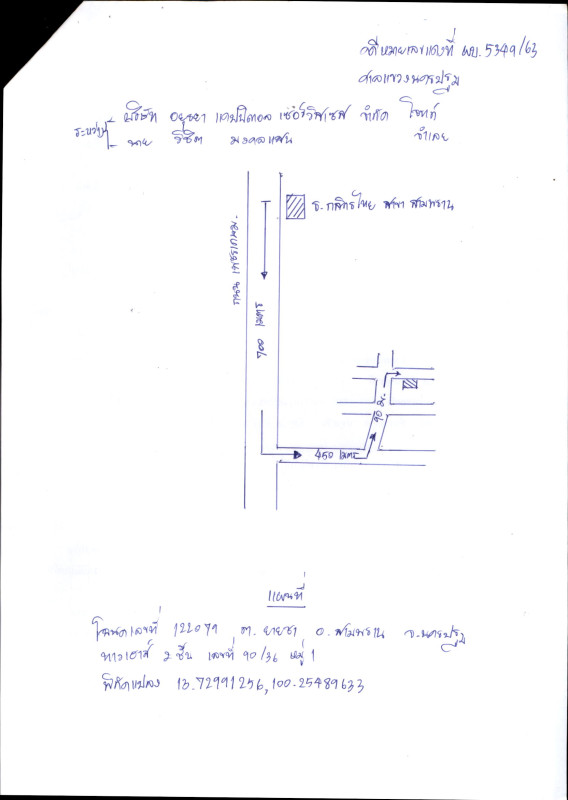 คดีหมายเลขแดงที่ ผบ. 5349/63
ศาลแขวงนครปฐม
ระหว่าง
บริษัท อยุธยา แคปปิตอล เซอร์วิสเซส จำกัด โจทก์
นาย วิชิต มงคลแสน จำเลย
ธ. กสิกรไทย สาขา สามพราน
ถนน เพชรเกษม
700 เมตร
90 ม.
450 เมตร
แผนที่
โฉนดเลขที่ 122079 ต. ยายชา อ. สามพราน จ. นครปฐม
ทาวเฮาส์ 2 ชั้น เลขที่ 90/36 หมู่ 1
พิกัดแปลง 13.72991256, 100.25489633